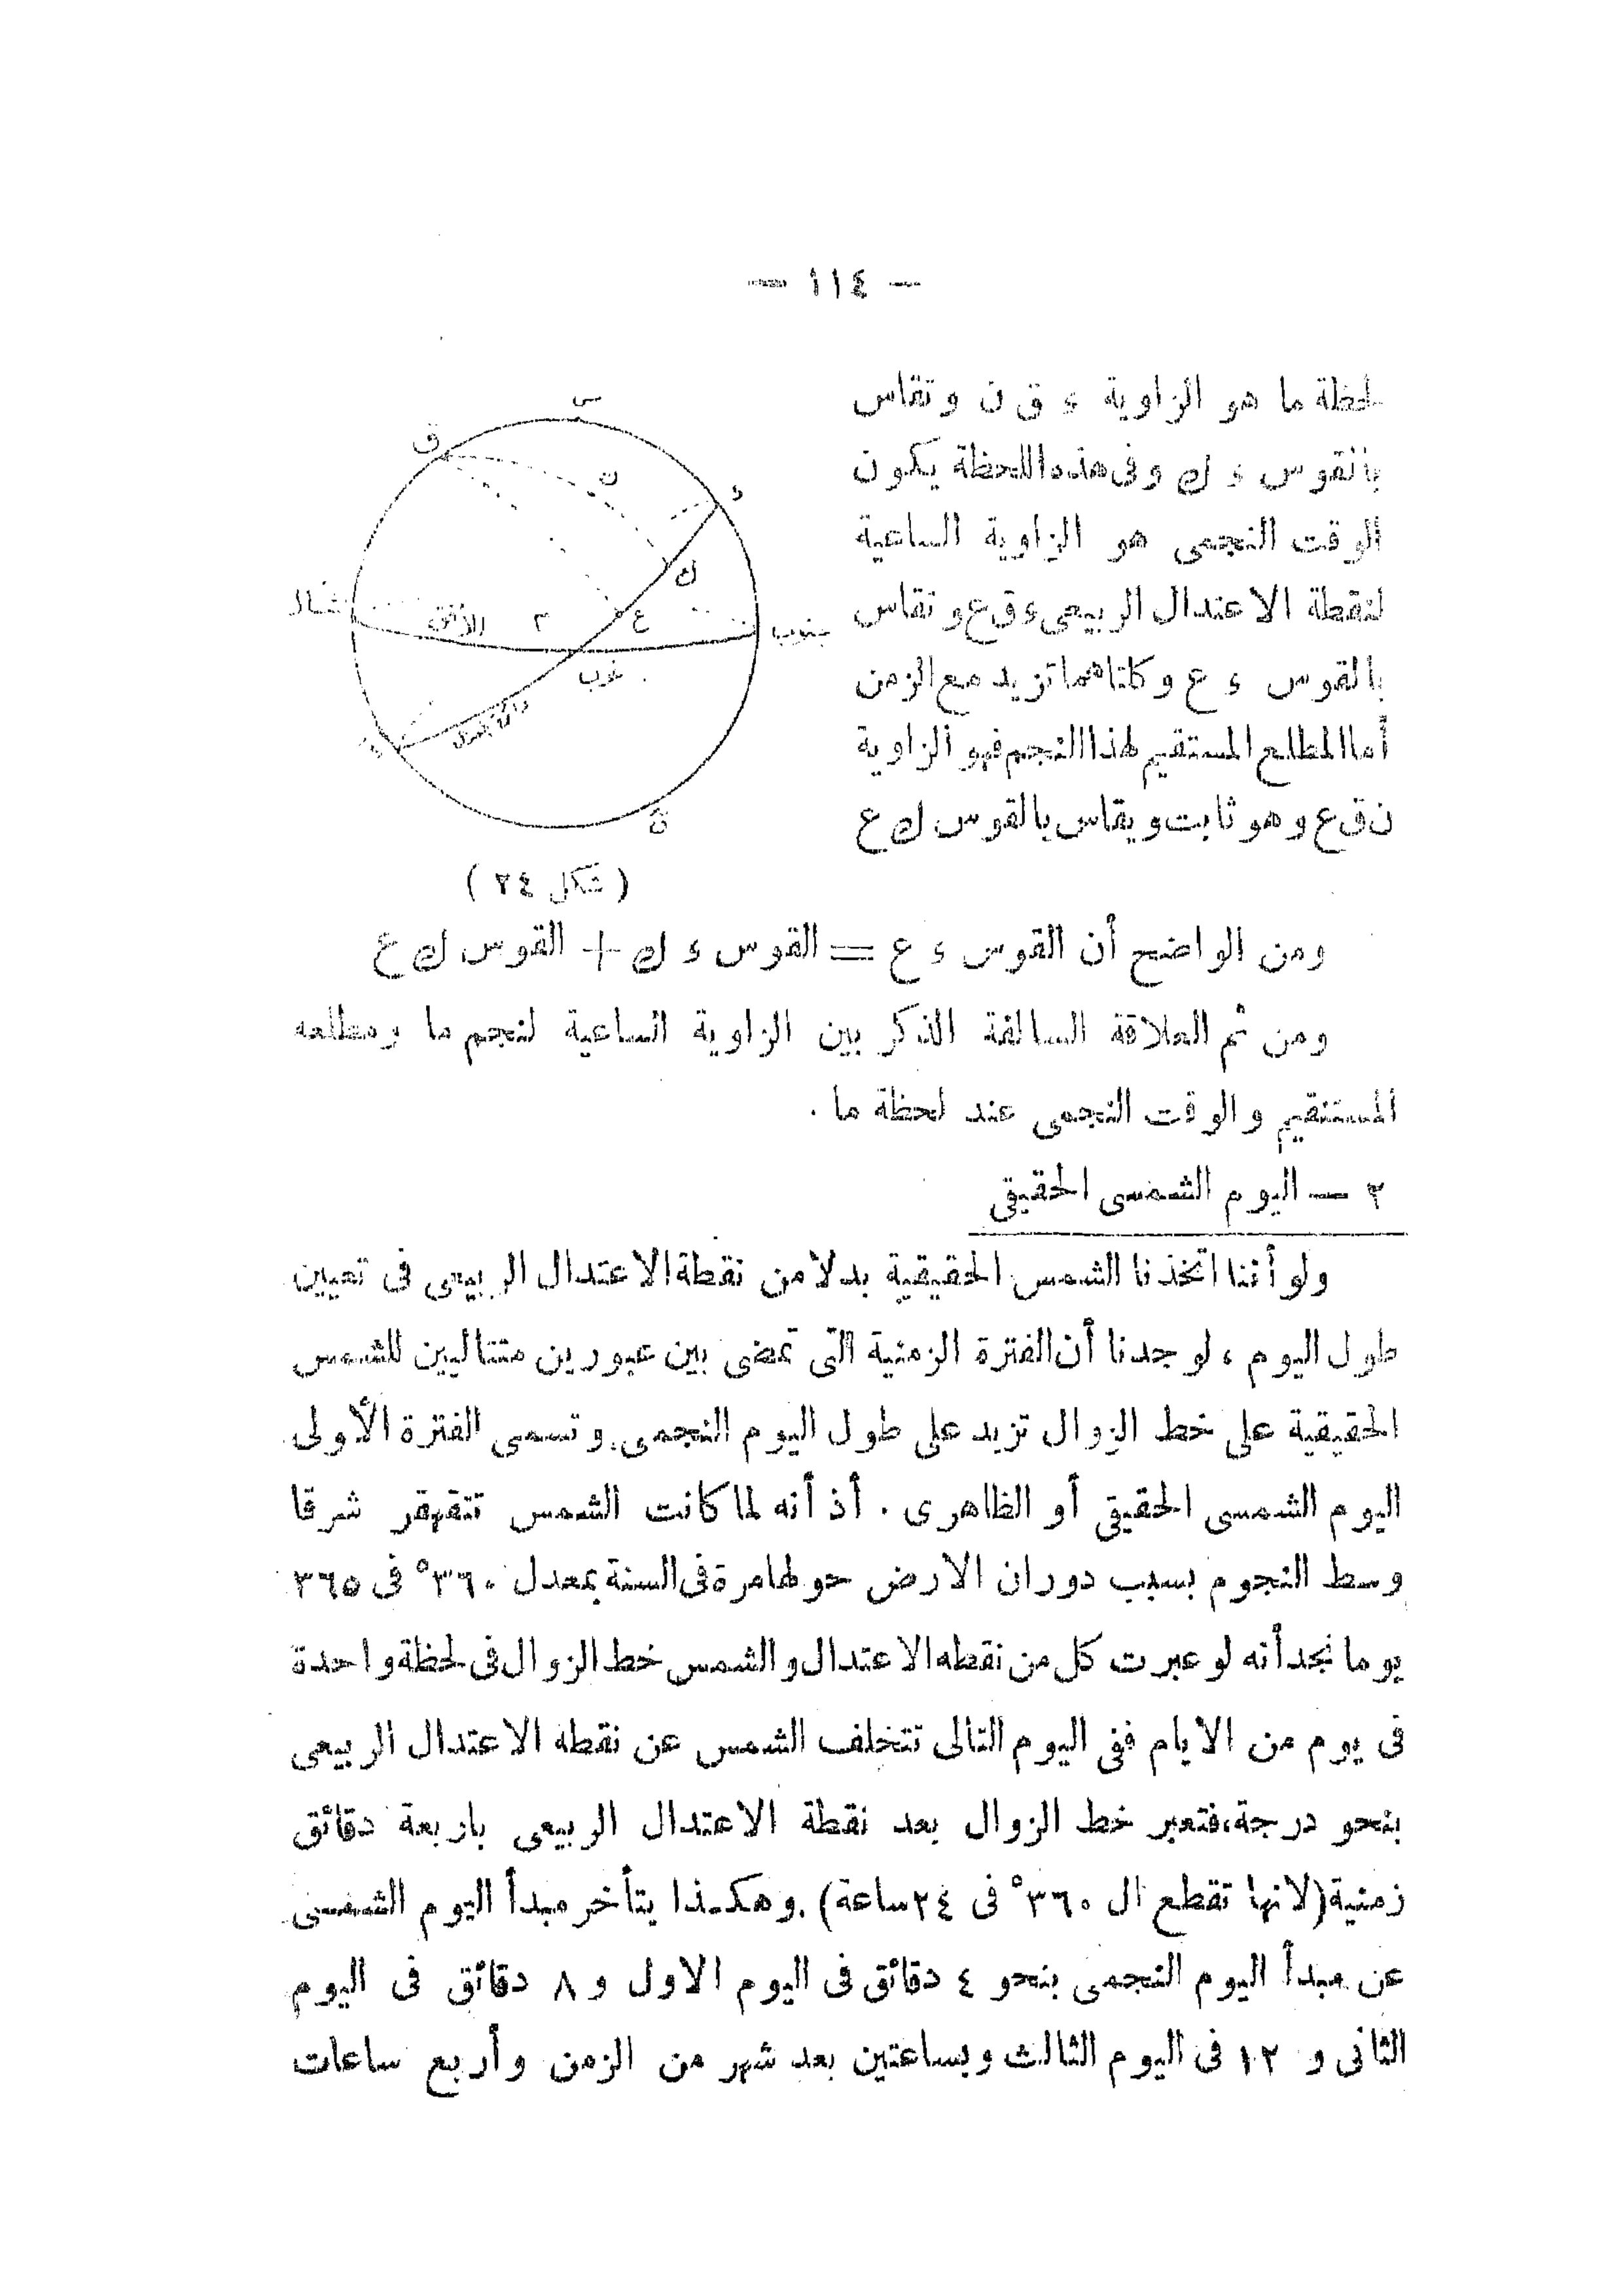 — ١١٤ —
لحظة ما هو الزاوية ء ق ن وتقاس
بالقوس ء ك وفى هذه اللحظة يكون
الوقت النجمى هو الزاوية الساعية
لنقطة الاعتدال الربيعى ء ق ع وتقاس
بالقوس ء ع وكلتاهما تزيد مع الزمن
أما المطلع المستقيم لهذا النجم فهو الزاوية
ن ق ع وهو ثابت ويقاس بالقوس ك ع
س
ق
ن
ء
ك
شمال
الأفق
م
ع
جنوب
غرب
دائرة المعدل
قَ
( شكل ٢٤ )
ومن الواضح أن القوس ء ع = القوس ء ك + القوس ك ع
ومن ثم العلاقة السالفة الذكر بين الزاوية الساعية لنجم ما ومطلعه
المستقيم والوقت النجمى عند لحظة ما .
٢ — اليوم الشمسى الحقيقى
ولو أننا اتخذنا الشمس الحقيقية بدلا من نقطة الاعتدال الربيعى فى تعيين
طول اليوم ، لوجدنا أن الفترة الزمنية التى تمضى بين عبورين متتاليين للشمس
الحقيقية على خط الزوال تزيد على طول اليوم النجمى . وتسمى الفترة الأولى
اليوم الشمسى الحقيقى أو الظاهرى . أذ أنه لما كانت الشمس تتقهقر شرقا
وسط النجوم بسبب دوران الارض حولها مرة فى السنة بمعدل ٣٦٠° فى ٣٦٥
يوما نجد أنه لو عبرت كل من نقطه الاعتدال والشمس خط الزوال فى لحظة واحدة
فى يوم من الايام ففى اليوم التالى تتخلف الشمس عن نقطه الاعتدال الربيعى
بنحو درجة،فتعبر خط الزوال بعد نقطة الاعتدال الربيعى باربعة دقائق
زمنية (لانها تقطع ال ٣٦٠° فى ٢٤ ساعة) . وهكذا يتأخر مبدأ اليوم الشمسى
عن مبدأ اليوم النجمى بنحو ٤ دقائق فى اليوم الاول و ٨ دقائق فى اليوم
الثانى و ١٢ فى اليوم الثالث وبساعتين بعد شهر من الزمن وأربع ساعات